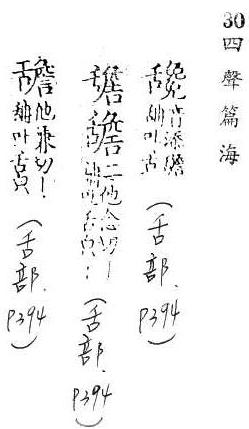 30 四聲篇海
音添 吐舌 (舌部. P394)
舚 二他念切 吐舌皃 (舌部. P394)
舚 他兼切 吐舌皃 (舌部. P394)